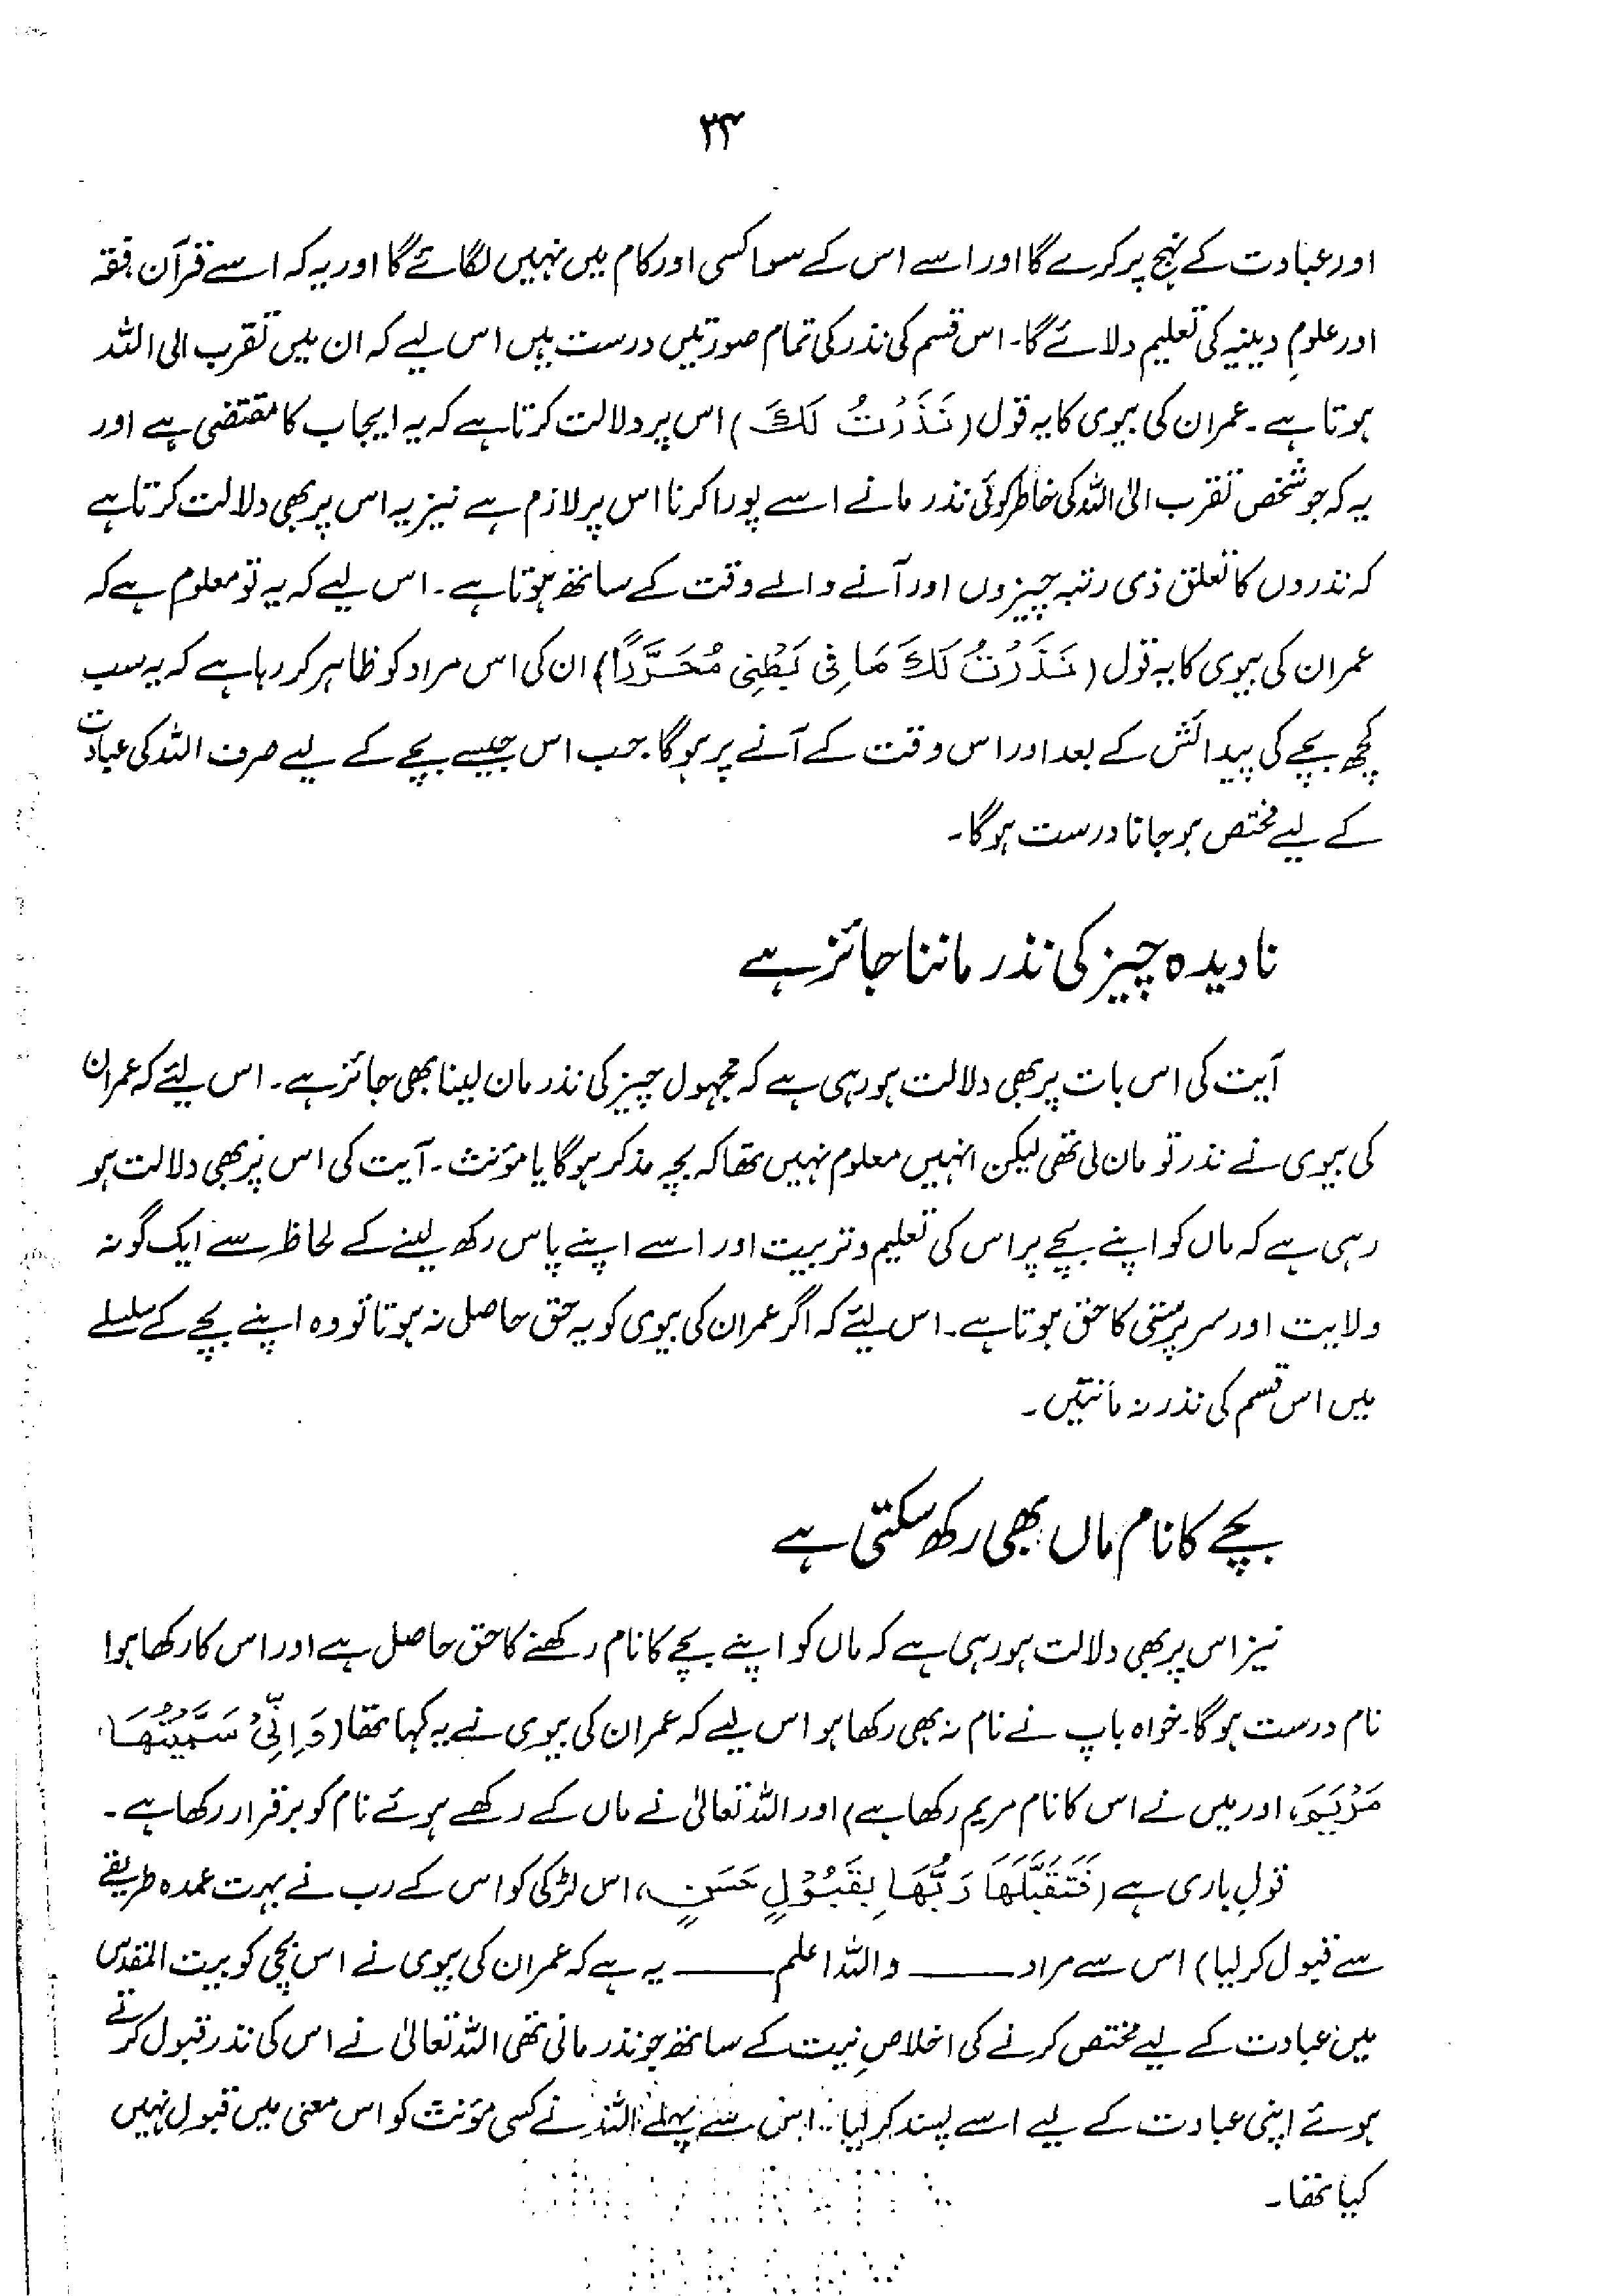 ۳۴
اور عبادت کے نہج پر کرے گا اور اسے اس کے سوا کسی اور کام میں نہیں لگائے گا اور یہ کہ اسے قرآن، فقہ
اور علومِ دینیہ کی تعلیم دلائے گا۔ اس قسم کی نذر کی تمام صورتیں درست ہیں اس لیے کہ ان میں تقرب الی اللہ
ہوتا ہے۔ عمران کی بیوی کا یہ قول (نَذَرْتُ لَكَ) اس پر دلالت کرتا ہے کہ یہ ایجاب کا مقتضی ہے اور
یہ کہ جو شخص تقرب الی اللہ کی خاطر کوئی نذر مانے اسے پورا کرنا اس پر لازم ہے نیز یہ اس پر بھی دلالت کرتا ہے
کہ نذروں کا تعلق ذی رتبہ چیزوں اور آنے والے وقت کے ساتھ ہوتا ہے۔ اس لیے کہ یہ تو معلوم ہے کہ
عمران کی بیوی کا یہ قول (نَذَرْتُ لَكَ مَا فِي بَطْنِي مُحَرَّرًا) ان کی اس مراد کو ظاہر کر رہا ہے کہ یہ سب
کچھ بچے کی پیدائش کے بعد اور اس وقت کے آنے پر ہو گا۔ جب اس جیسے بچے کے لیے صرف اللہ کی عبادت
کے لیے مختص ہو جانا درست ہوگا۔
نادیدہ چیز کی نذر ماننا جائز ہے
آیت کی اس بات پر بھی دلالت ہو رہی ہے کہ مجہول چیز کی نذر مان لینا بھی جائز ہے۔ اس لئے کہ عمران
کی بیوی نے نذر تو مان لی تھی لیکن انہیں معلوم نہیں تھا کہ بچہ مذکر ہوگا یا مؤنث۔ آیت کی اس پر بھی دلالت ہو
رہی ہے کہ ماں کو اپنے بچے پر اس کی تعلیم و تربیت اور اسے اپنے پاس رکھ لینے کے لحاظ سے ایک گونہ
ولایت اور سرپرستی کا حق ہوتا ہے۔ اس لیئے کہ اگر عمران کی بیوی کو یہ حق حاصل نہ ہوتا تو وہ اپنے بچے کے سلسلے
میں اس قسم کی نذر نہ مانتیں۔
بچے کا نام ماں بھی رکھ سکتی ہے
نیز اس پر بھی دلالت ہو رہی ہے کہ ماں کو اپنے بچے کا نام رکھنے کا حق حاصل ہے اور اس کا رکھا ہوا
نام درست ہوگا۔ خواہ باپ نے نام نہ بھی رکھا ہو اس لیے کہ عمران کی بیوی نے یہ کہا تھا (وَاِنِّيْ سَمَّيْتُهَا
مَرْيَمَ، اور میں نے اس کا نام مریم رکھا ہے) اور اللہ تعالیٰ نے ماں کے رکھے ہوئے نام کو برقرار رکھا ہے۔
قولِ باری ہے (فَتَقَبَّلَهَا رَبُّهَا بِقَبُوْلٍ حَسَنٍ، اس لڑکی کو اس کے رب نے بہت عمدہ طریقے
سے قبول کر لیا) اس سے مراد ــــــ واللہ اعلم ــــــ یہ ہے کہ عمران کی بیوی نے اس بچی کو بیت المقدس
میں عبادت کے لیے مختص کرنے کی اخلاصِ نیت کے ساتھ جو نذر مانی تھی اللہ تعالیٰ نے اس کی نذر قبول کرتے
ہوئے اپنی عبادت کے لیے اسے پسند کر لیا۔ اس سے پہلے اللہ نے کسی مؤنث کو اس معنی میں قبول نہیں
کیا تھا۔